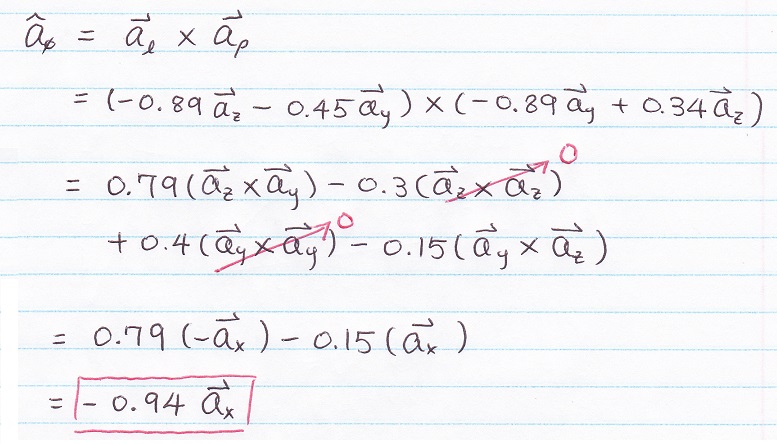 â_φ = a⃗_ℓ × a⃗_ρ
= (-0.89 a⃗_z - 0.45 a⃗_y) × (-0.89 a⃗_y + 0.34 a⃗_z)
= 0.79 (a⃗_z × a⃗_y) - 0.3 (a⃗_z × a⃗_z) 0
+ 0.4 (a⃗_y × a⃗_y) 0 - 0.15 (a⃗_y × a⃗_z)
= 0.79 (-a⃗_x) - 0.15 (a⃗_x)
= -0.94 a⃗_x